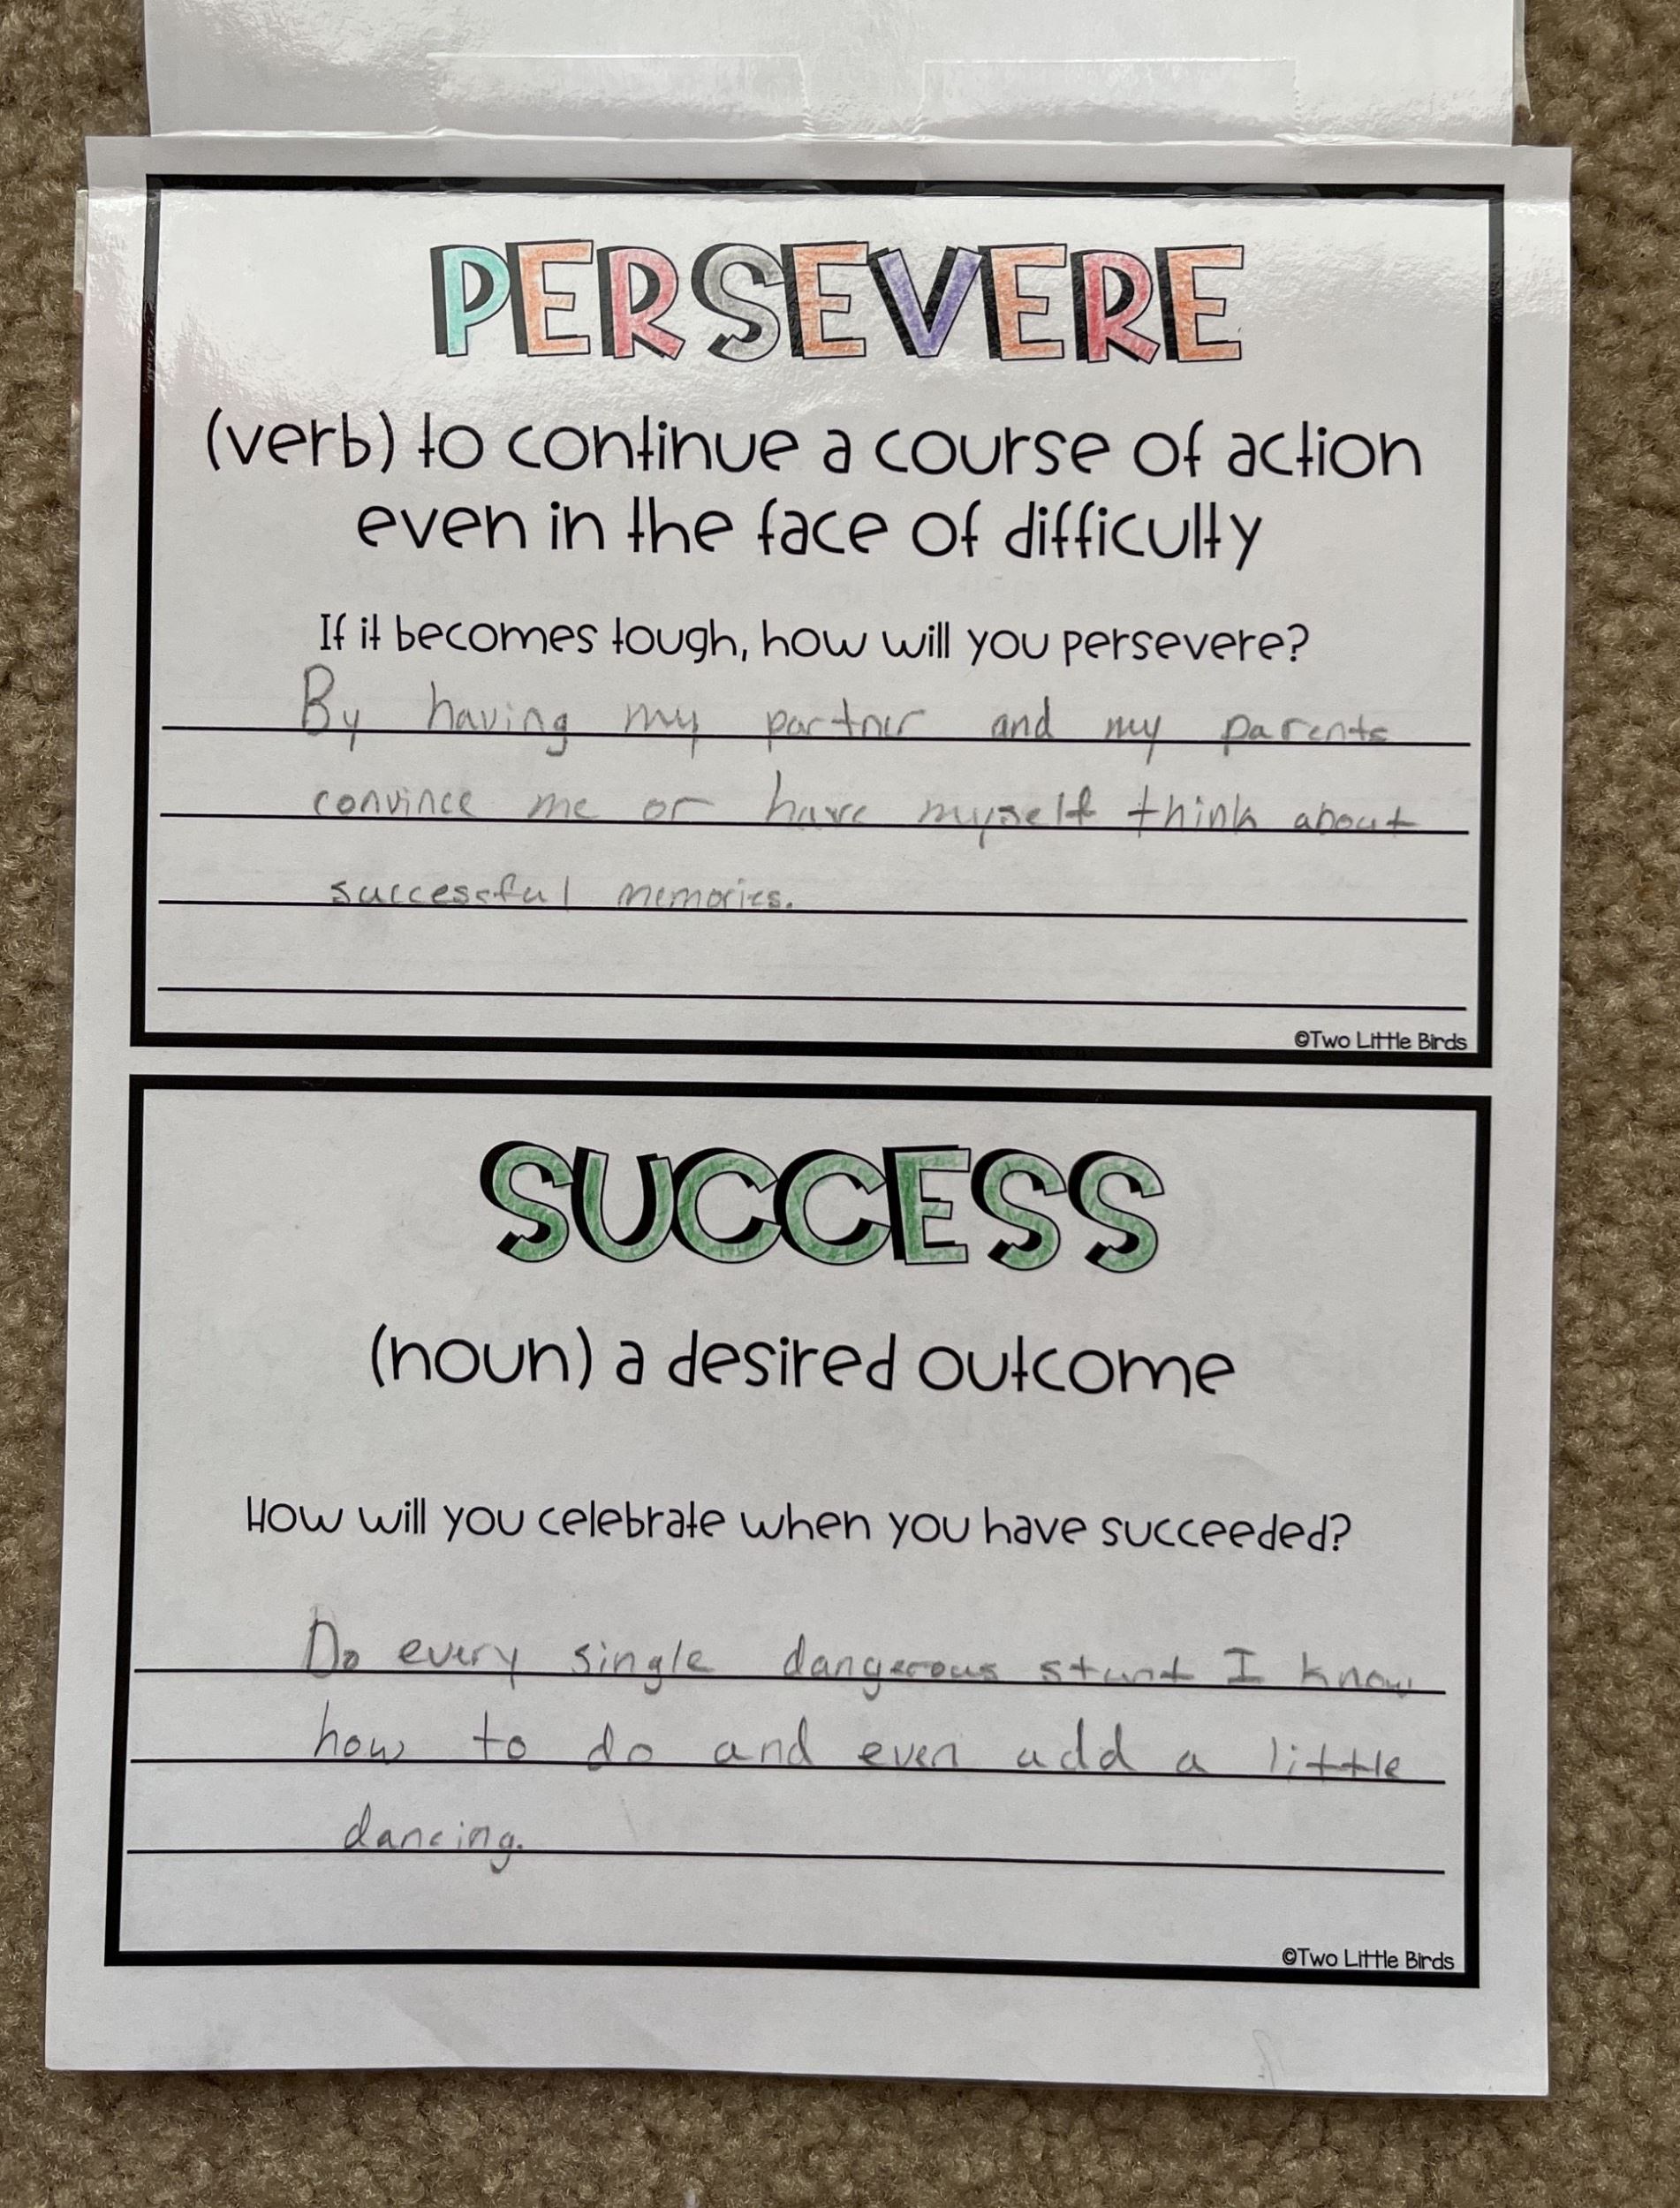 PERSEVERE
(verb) to continue a course of action
even in the face of difficulty
If it becomes tough, how will you persevere?
By having my partner and my parents
convince me or have myself think about
successful memories.
©Two Little Birds
SUCCESS
(noun) a desired outcome
How will you celebrate when you have succeeded?
Do every single dangerous stunt I know
how to do and even add a little
dancing.
©Two Little Birds